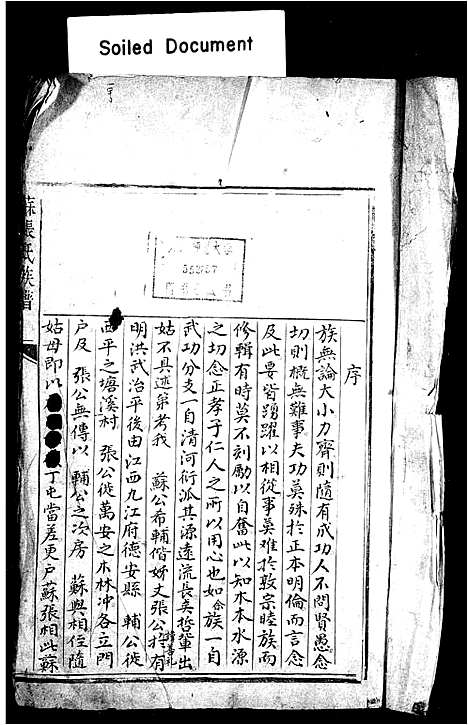 Soiled Document
蘇張氏族譜
352757
序
族無論大小力齊則隨有成功人不問賢愚念
切則概無難事夫功莫殊於正本明倫而言念
及此要皆踴躍以相從事莫难於敦宗睦族而
修輯有時莫不刻勵以自奮此以知水木本源
之切念正孝子仁人之所以用心也如俞族一自
武功分支一自清河衍派其源遠流長矣哲輩出
姑不具述第考我 蘇公希輔偕妤丈張公 有
明洪武治平後由江西九江府德安縣 輔公徙
西平之塘溪村 張公徙萬安之木林冲各立門
户及 張公無傳以 輔公之次房 蘇與相任隨
姑母即以 丁屯當差更户蘇張相此蘇